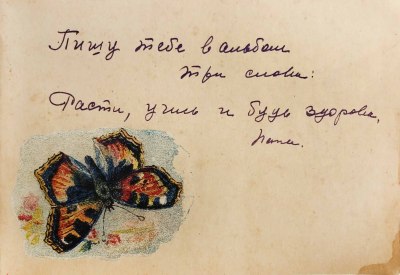 Пишу тебе в альбом
три слова:
Расти, учись и будь здорова,
Папа.